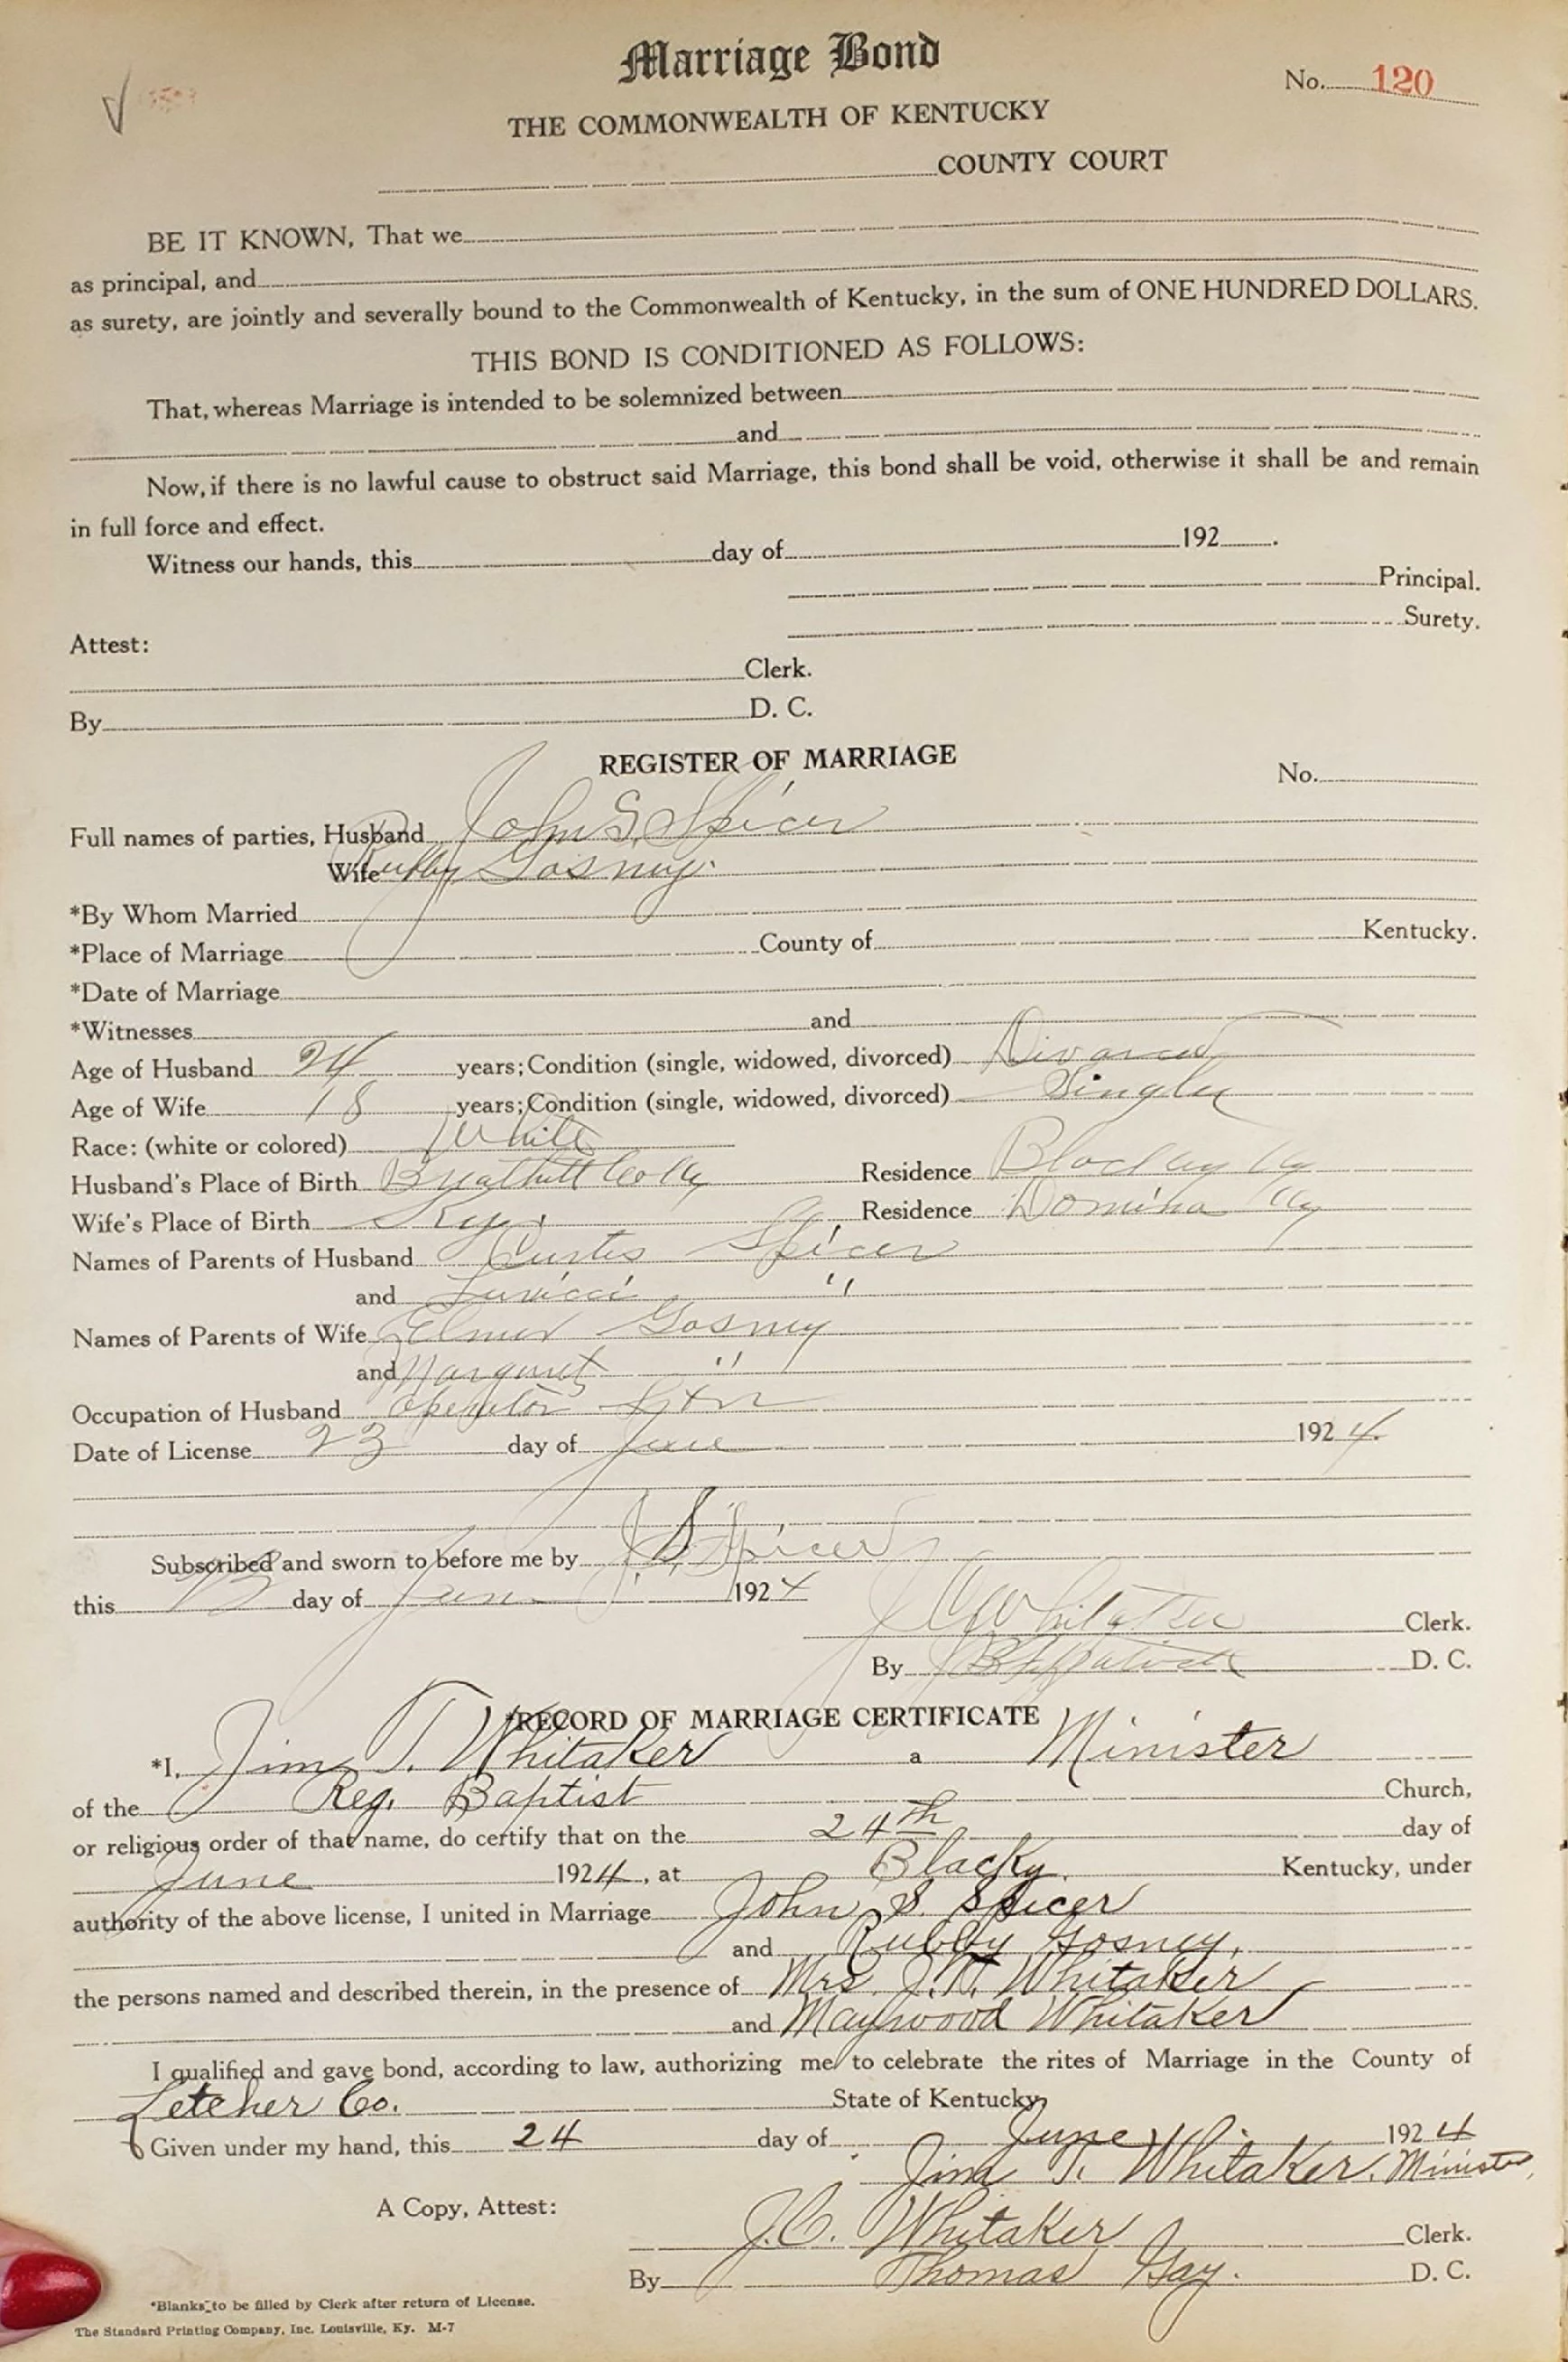 Marriage Bond
No. 120
THE COMMONWEALTH OF KENTUCKY
COUNTY COURT
BE IT KNOWN, That we
as principal, and
as surety, are jointly and severally bound to the Commonwealth of Kentucky, in the sum of ONE HUNDRED DOLLARS.
THIS BOND IS CONDITIONED AS FOLLOWS:
That, whereas Marriage is intended to be solemnized between
and
Now, if there is no lawful cause to obstruct said Marriage, this bond shall be void, otherwise it shall be and remain
in full force and effect.
Witness our hands, this day of 192 .
Principal.
Surety.
Attest:
Clerk.
By D. C.
REGISTER OF MARRIAGE
No.
Full names of parties, Husband John S. Spicer
Wife Rubby Gosney.
*By Whom Married
*Place of Marriage County of Kentucky.
*Date of Marriage
*Witnesses and
Age of Husband 24 years; Condition (single, widowed, divorced) Divorced
Age of Wife 18 years; Condition (single, widowed, divorced) Single
Race: (white or colored) White
Husband's Place of Birth Breathitt Co Ky Residence Blackey Ky
Wife's Place of Birth Ky. Residence Domino Ky
Names of Parents of Husband Curtis Spicer
and "
Names of Parents of Wife Elmer Gosney
and Margaret "
Occupation of Husband Operator
Date of License 23 day of June 1924.
Subscribed and sworn to before me by J. S. Spicer
this day of June 1924
J C Whitaker Clerk.
By D. C.
*RECORD OF MARRIAGE CERTIFICATE
*I, Jim T. Whitaker a Minister
of the Reg. Baptist Church,
or religious order of that name, do certify that on the 24th day of
June 1924, at Blacky. Kentucky, under
authority of the above license, I united in Marriage John S. Spicer
and Rubby Gosney,
the persons named and described therein, in the presence of Mrs. J. T. Whitaker
and Maywood Whitaker
I qualified and gave bond, according to law, authorizing me to celebrate the rites of Marriage in the County of
Letcher Co. State of Kentucky
Given under my hand, this 24 day of June 1924
Jim T. Whitaker. Minister,
A Copy, Attest:
J. C. Whitaker Clerk.
By Thomas Gay. D. C.
*Blanks to be filled by Clerk after return of License.
The Standard Printing Company, Inc. Louisville, Ky. M-7